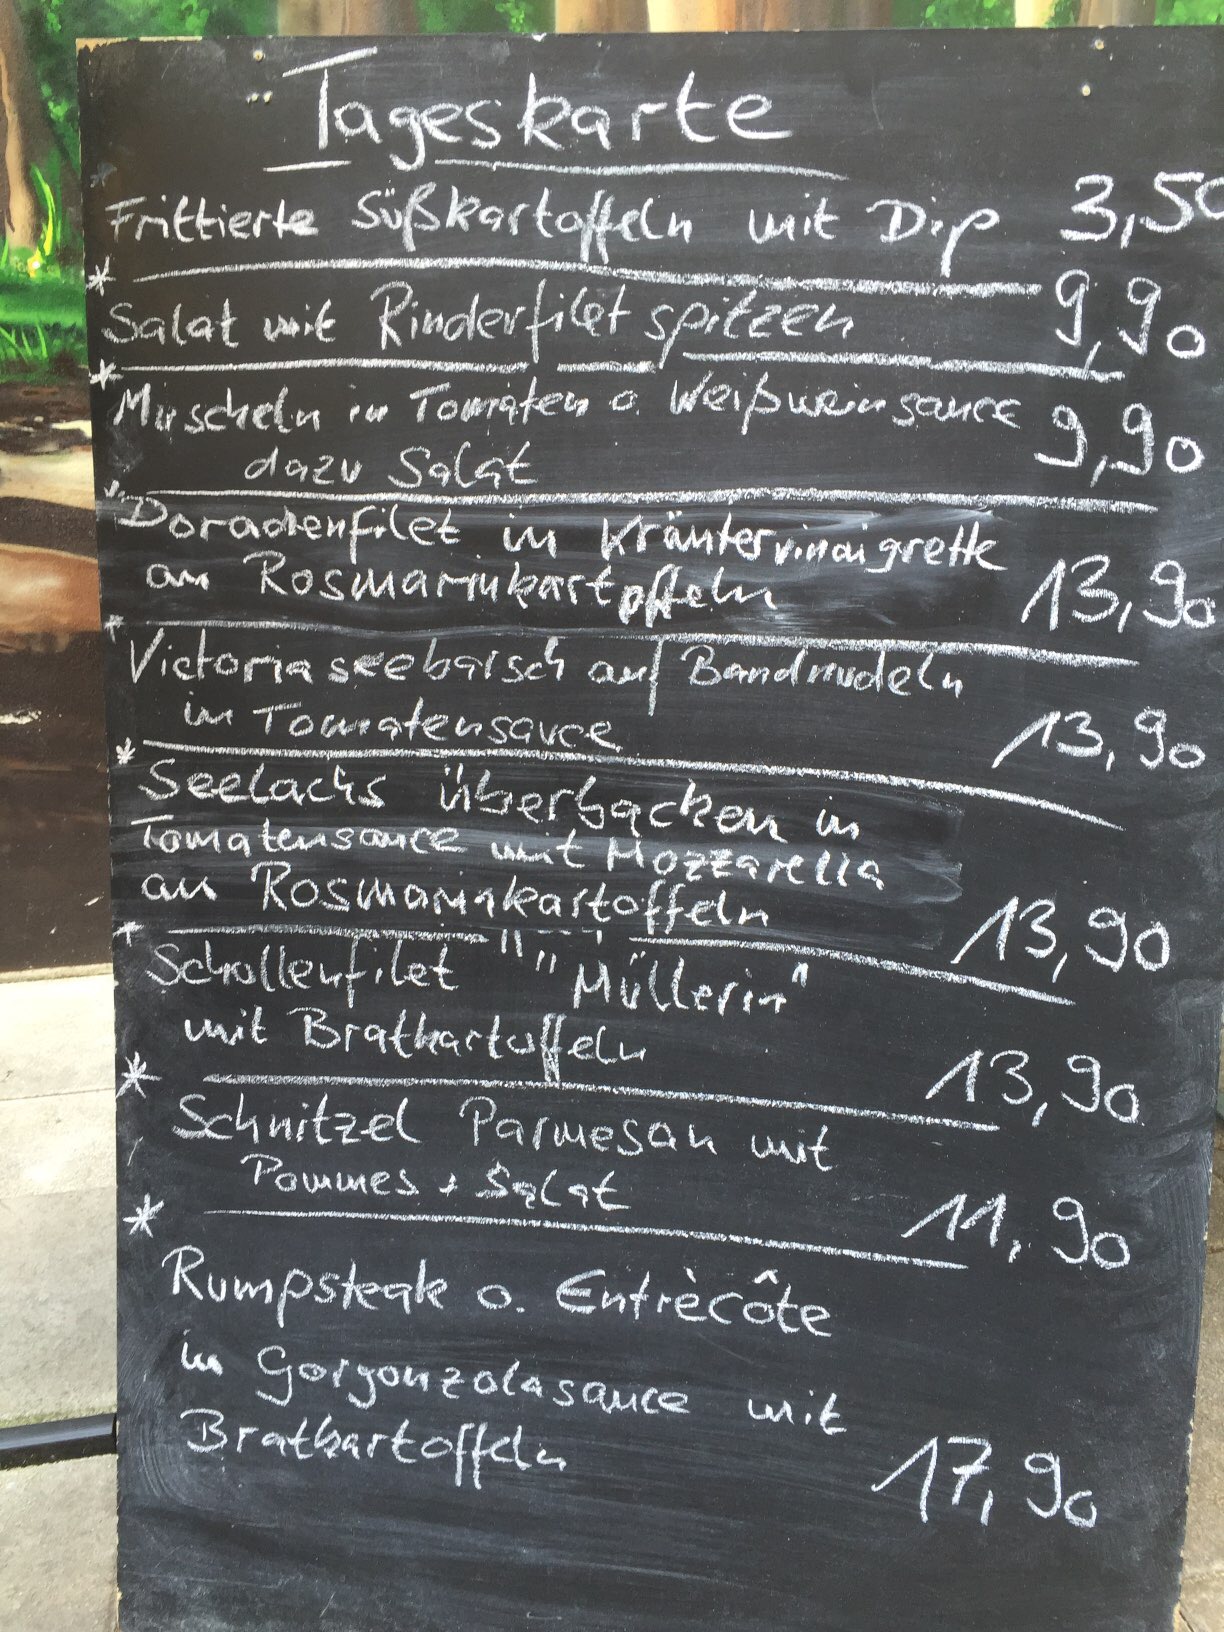 Tageskarte
Frittierte Süßkartoffeln mit Dip 3,50
* Salat mit Rinderfiletspitzen 9,90
* Muscheln in Tomaten o. Weißweinsauce
dazu Salat 9,90
* Doradenfilet in Kräutervinaigrette
an Rosmarinkartoffeln 13,90
* Victoriaseebarsch auf Bandnudeln
in Tomatensauce 13,90
* Seelachs überbacken in
Tomatensauce mit Mozzarella
an Rosmarinkartoffeln 13,90
* Schollenfilet "Müllerin"
mit Bratkartoffeln 13,90
* Schnitzel Parmesan mit
Pommes + Salat 11,90
* Rumpsteak o. Entrècôte
in Gorgonzolasauce mit
Bratkartoffeln 17,90